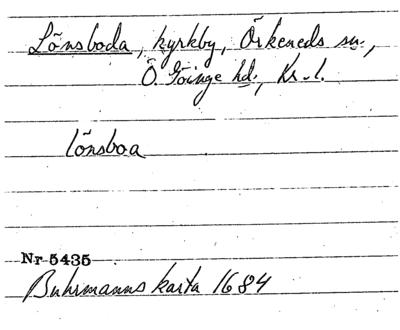 Lönsboda, kyrkby, Örkeneds sn.,
Ö. Göinge hd., Kr. l.
lönsboa
Nr 5435
Buhrmanns karta 1684